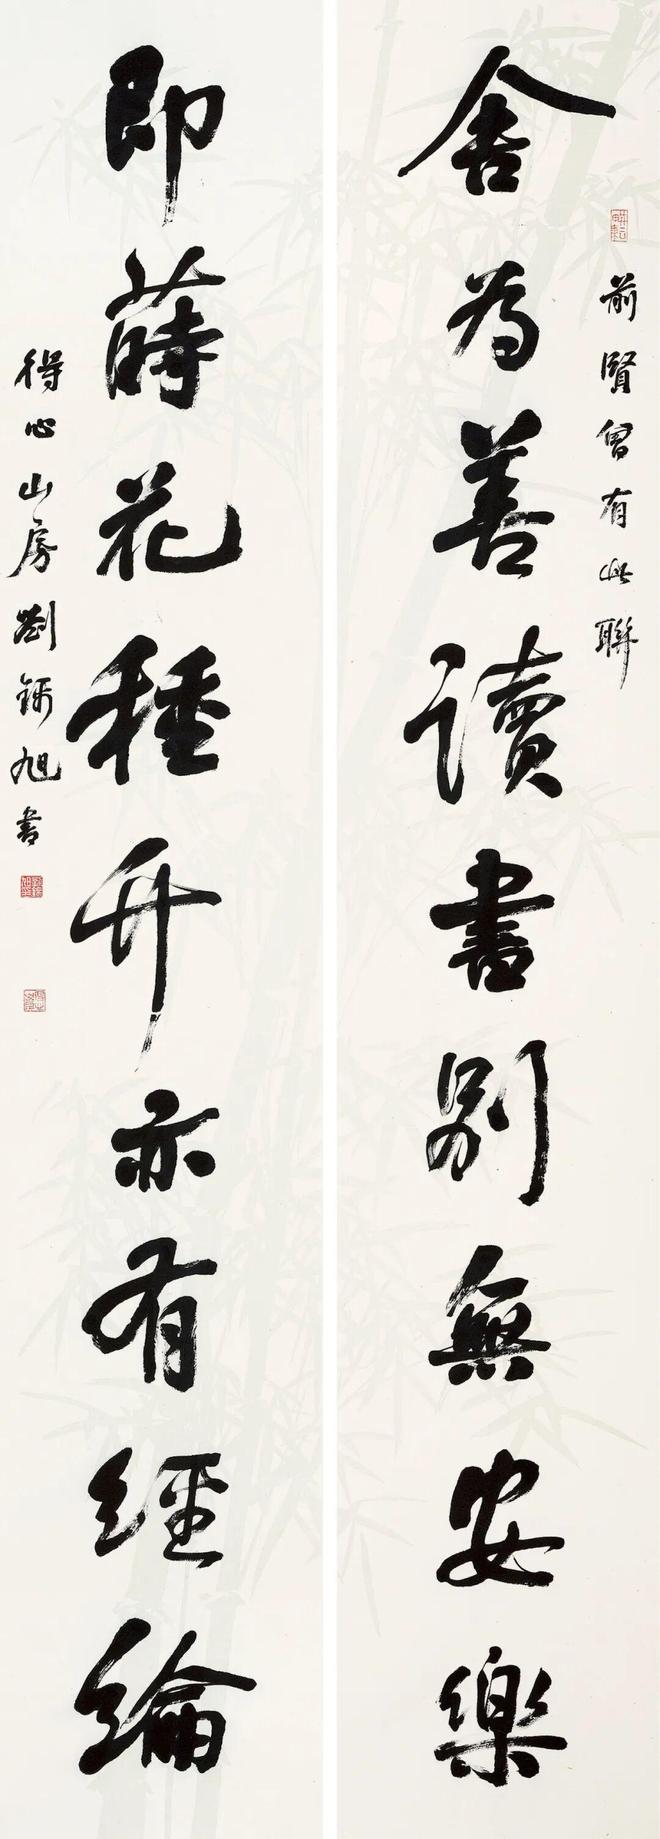 前賢曾有此聯
舍為善讀書別無安樂
即蒔花種竹亦有經綸
得心山房劉旭書